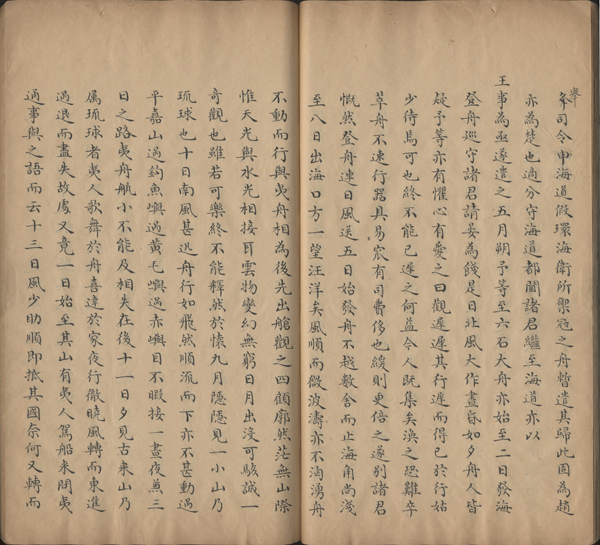 舉
夆司今申海道倣環海衛所禦寇之舟暫遣其歸此固為趙
亦為楚也適分守海道都閫諸君繼至海道亦以
王事為亟遂遣之五月朔予等至六石大舟亦始至二日發海
登舟巡守諸君請妄為餞是日北風大作晝昏如夕舟人皆
疑予等亦有懼心有愛之曰觀遲遲其行遲而得已於行姑
少待焉可也終不能已遲之何益今人既集矣渙之恐難卒
萃舟不速行器具易窳有司費侈也緩則更倍之遂別諸君
慨然登舟連日風送五日始發舟不越數舍而止海角尚淺
至八日出海口方一望汪洋矣風順而微波濤亦不洶湧舟
不動而行與夷舟相為後先出艙觀之四顧廓然茫無山際
惟天光與水光相接耳雲物變幻無窮日月出沒可駭誠一
奇觀也雖若可樂終不能釋然於懷九月隱隱見一小山乃
琉球也十日南風甚迅舟行如飛然順流而下亦不甚動過
平嘉山過釣魚嶼過黃毛嶼過亦嶼目不暇接一晝夜兼三
日之路夷舟航小不能及相失在後十一日夕見古來山乃
属琉球者夷人歌舞於舟喜達於家夜行徹曉風轉而東進
過退而盡失故處又竟一日始至其山有夷人駕船來問夷
通事與之語而云十三日風少助順即抵其國奈何又轉而